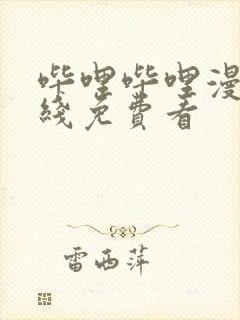 哔哩哔哩漫
线免费看
雷西萍